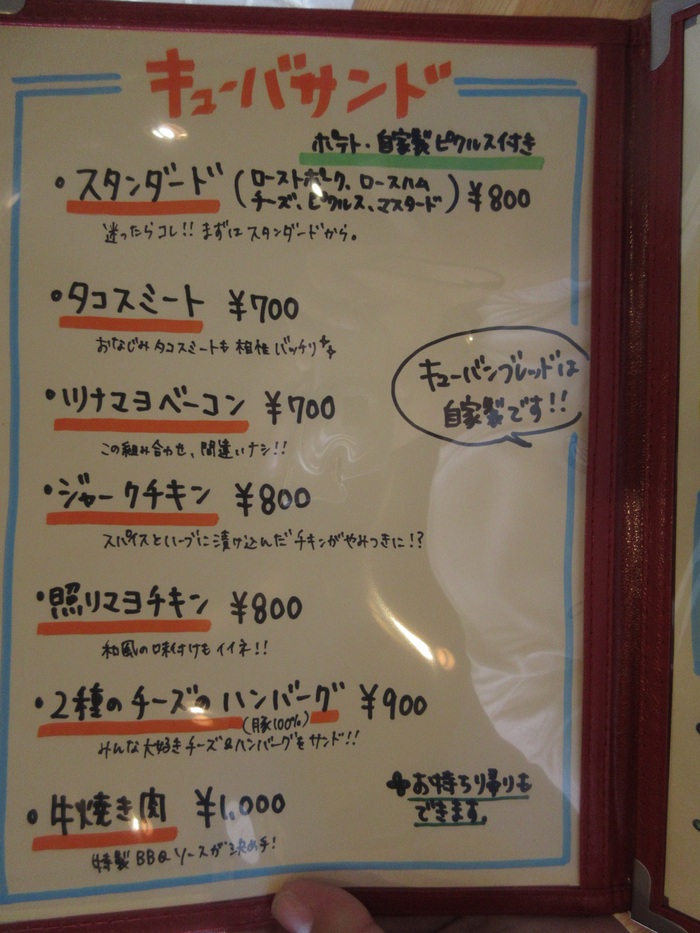 キューバサンド
ポテト・自家製ピクルス付き
・スタンダード (ローストポーク、ロースハム
チーズ、ピクルス、マスタード) ¥800
迷ったらコレ!! まずはスタンダードから。
・タコスミート ¥700
おなじみタコスミートも相性バッチリ
・ツナマヨベーコン ¥700
この組み合わせ、間違いナシ!!
キューバンブレッドは
自家製です!!
・ジャークチキン ¥800
スパイスとハーブに漬け込んだチキンがやみつきに!?
・照リマヨチキン ¥800
和風の味付けもイイネ!!
・2種のチーズのハンバーグ ¥900
(豚100%)
みんな大好きチーズ&ハンバーグをサンド!!
・牛焼き肉 ¥1,000
特製BBQソースが決め手!
お持ち帰りも
できます。